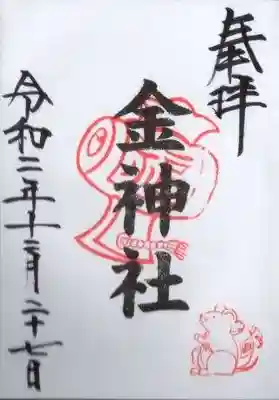 奉拝
金神社
令和二年十二月二十七日